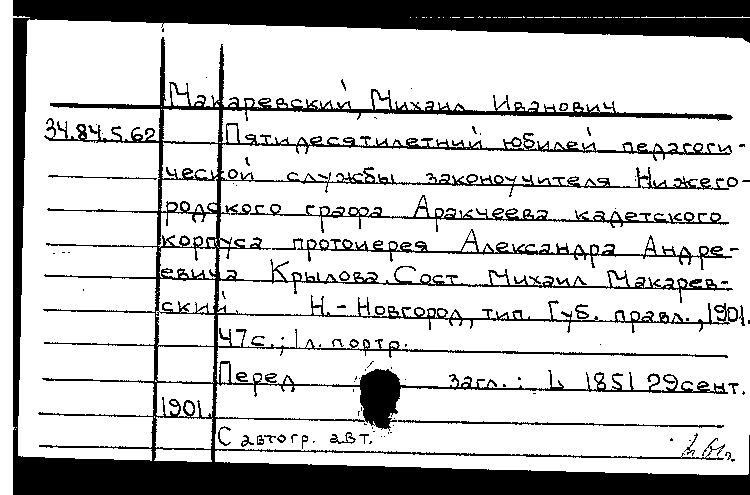 Макаревский, Михаил Иванович
34.84.5.62 Пятидесятилетний юбилей педагоги-
ческой службы законоучителя Нижего-
родского графа Аракчеева кадетского
корпуса протоиерея Александра Андре-
евича Крылова. Сост. Михаил Макарев-
ский. Н.-Новгород, тип. Губ. правл., 1901.
47с.; 1л. портр.
Перед загл.: 1851 29сент.
1901.
С автогр. авт.